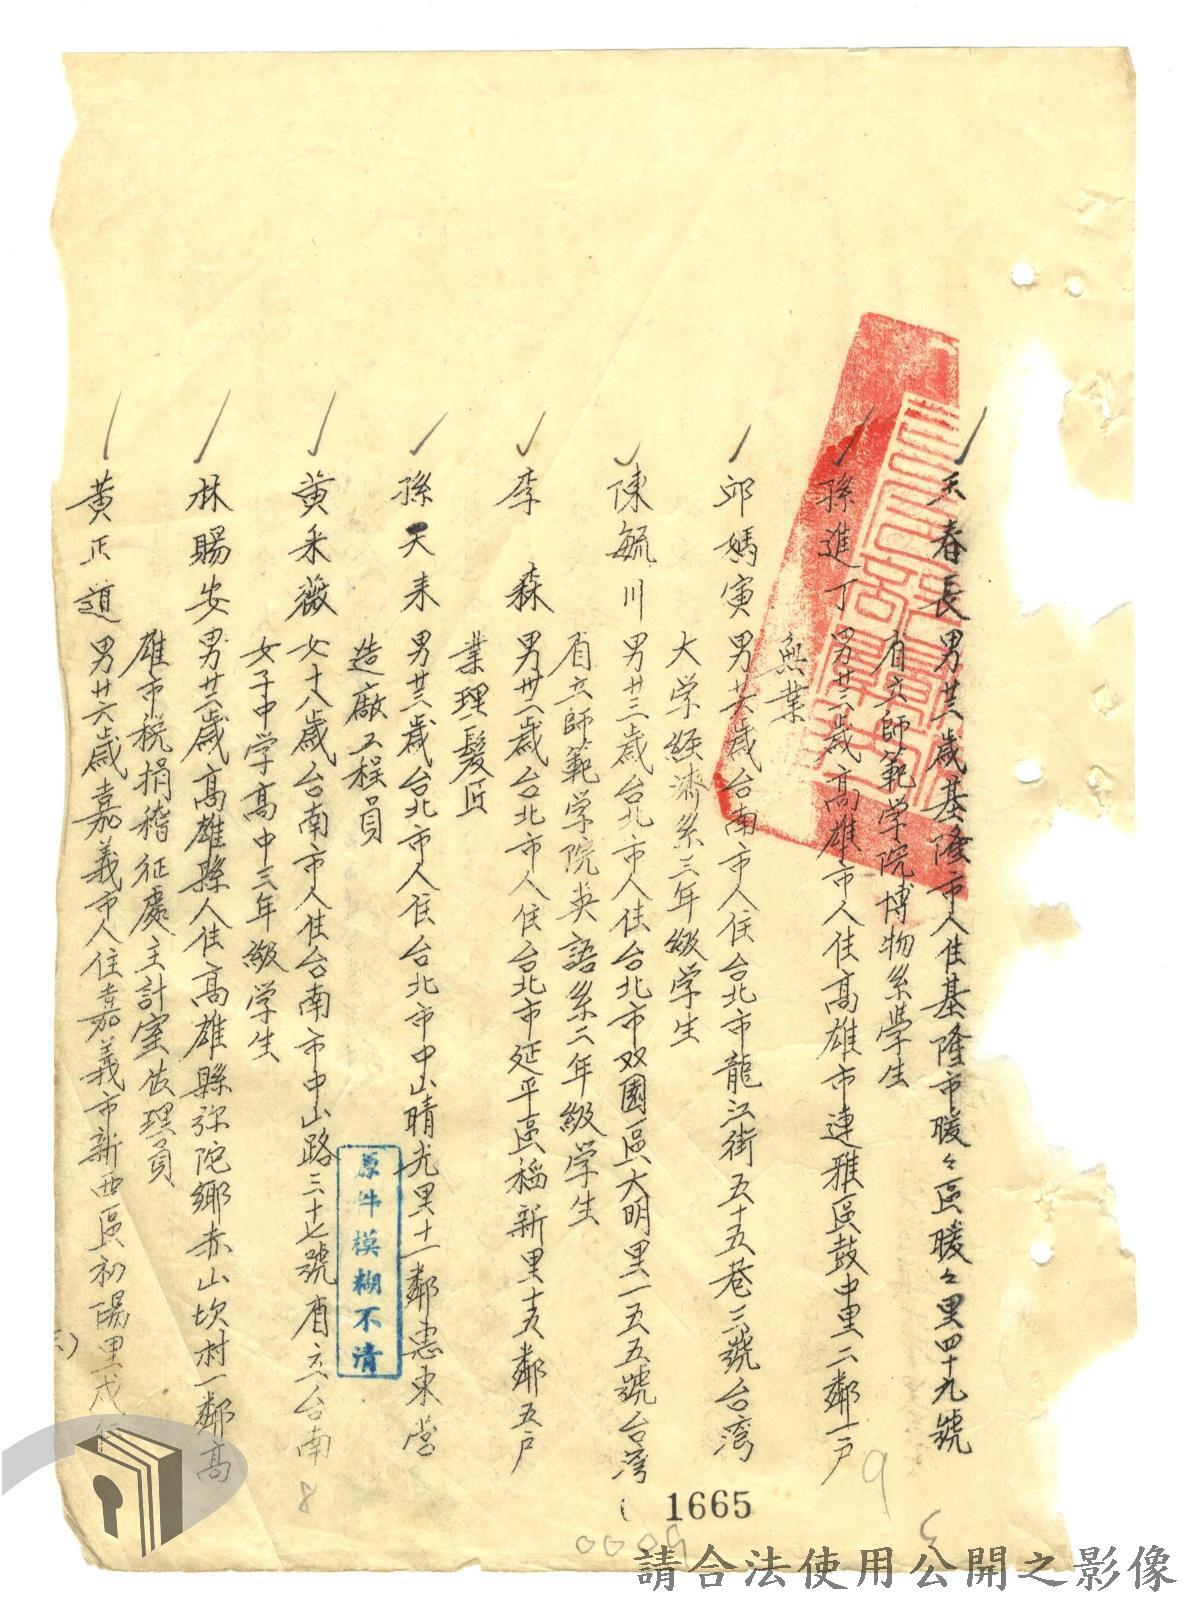 王春長 男廿六歲基隆市人住基隆市暖々區暖々里四十九號
省立師範学院博物系學生
孫進丁 男廿三歲高雄市人住高雄市連雅區鼓中里二鄰一户
無業
邱媽寅 男廿六歲台南市人住台北市龍江街五十五巷三號台湾
大学経濟系三年級学生
陳毓川 男廿三歲台北市人住台北市双園區大明里一五五號台湾
省立師範学院英語系二年級学生
李 森 男卅二歲台北市人住台北市延平區稻新里十五鄰五户
業理髮匠
孫天来 男廿三歲台北市人住台北市中山晴光里十一鄰惠東营
造廠工程員
黄采薇 女十八歲台南市人住台南市中山路三十七號省立台南
女子中学高中三年級学生
林賜安 男廿三歲高雄縣人住高雄縣弥陀鄉赤山坎村一鄰高
雄市税捐稽征處主計室佐理員
黄正道 男廿六歲嘉義市人住嘉義市新西區初陽里戍
原件模糊不清
1665
9
8
請合法使用公開之影像